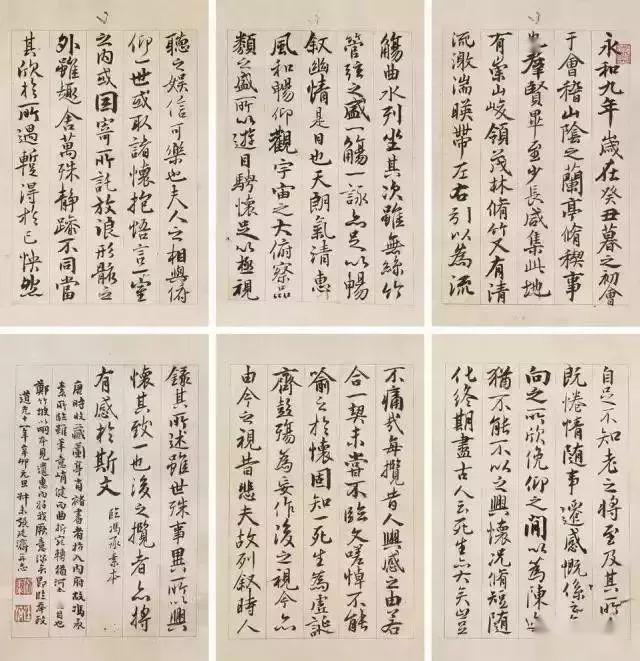 永和九年歲在癸丑暮之初會
于會稽山陰之蘭亭脩稧事
也羣賢畢至少長咸集此地
有崇山峻領茂林脩竹又有清
流激湍暎帶左右引以為流
觴曲水列坐其次雖無絲竹
管弦之盛一觴一詠亦足以暢
叙幽情是日也天朗氣清惠
風和暢仰觀宇宙之大俯察品
類之盛所以遊目騁懷足以極視
聽之娛信可樂也夫人之相與俯
仰一世或取諸懷抱悟言一室
之內或因寄所託放浪形骸之
外雖趣舍萬殊静躁不同當
其欣於所遇蹔得於己怏然
自足不知老之將至及其所
既惓情隨事遷感慨係
向之所欣俛仰之閒以為陳
猶不能不以之興懷況脩短隨
化終期盡古人云死生亦大矣豈
不痛哉每攬昔人興感之由若
合一契未嘗不臨文嗟悼不能
喻之於懷固知一死生為虛誕
齊彭殤為妄作後之視今亦
由今之視昔悲夫故列叙時人
錄其所述雖世殊事異所以興
懷其致也後之攬者亦將
有感於斯文 臨馮承素本
唐時收藏蘭亭 入內府故馮承
素所臨雖筆意精健而曲折宛轉猶 目也
鄭竹坡以明本見遺惠
道光十一年辛卯元旦叔未張廷濟